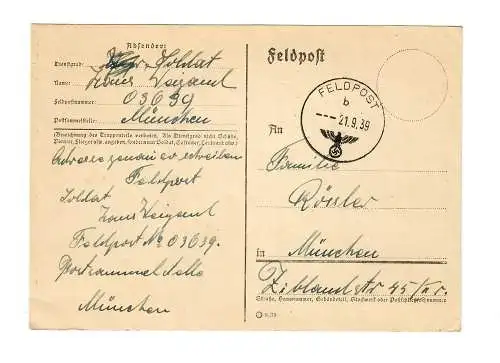 Absender:
Dienstgrad: Soldat
Name: Hans Weigand
Feldpostnummer: 03639
Postsammelstelle: München
(Bezeichnung des Truppenteils verboten. Als Dienstgrad nicht Schütze,
Pionier, Flieger usw. angeben, sondern nur Soldat, Gefreiter, Leutnant usw.)
Adresse genau so schreiben
Feldpost
Soldat
Hans Weigand
Feldpost No 03639.
Postsammelstelle
München
Feldpost
FELDPOST
b
--- 21.9.39
An
Familie
Rösler
in München
Zieblandstr 45/
Straße, Hausnummer, Gebäudeteil, Stockwerk oder Postschließfachnummer